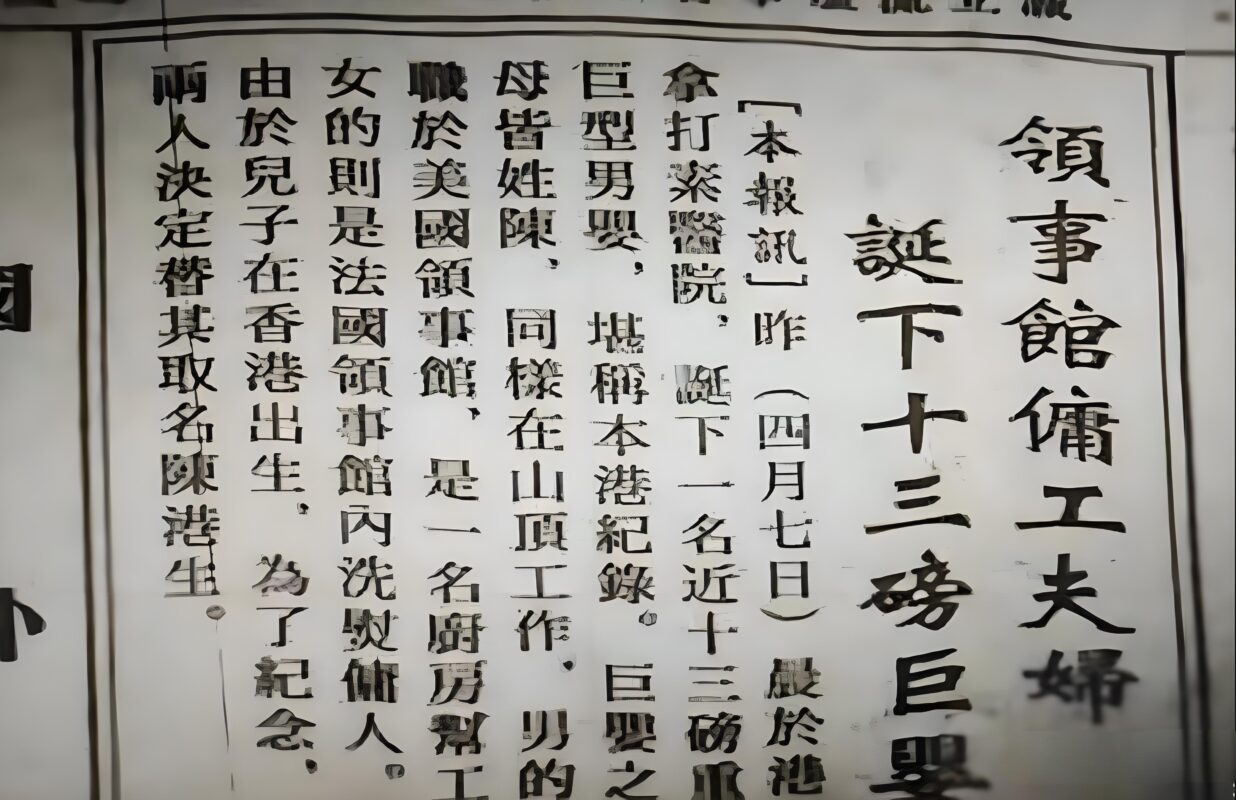 領事館傭工夫婦
誕下十三磅巨嬰
[本報訊]昨(四月七日)於港
拿打素醫院、誕下一名近十三磅
巨型男嬰、堪稱本港紀錄。巨嬰之
母皆姓陳、同樣在山頂工作、男的
職於美國領事館、是一名廚房幫工
女的則是法國領事館內洗熨傭人。
由於兒子在香港出生、為了記念、
兩人決定替其取名陳港生。